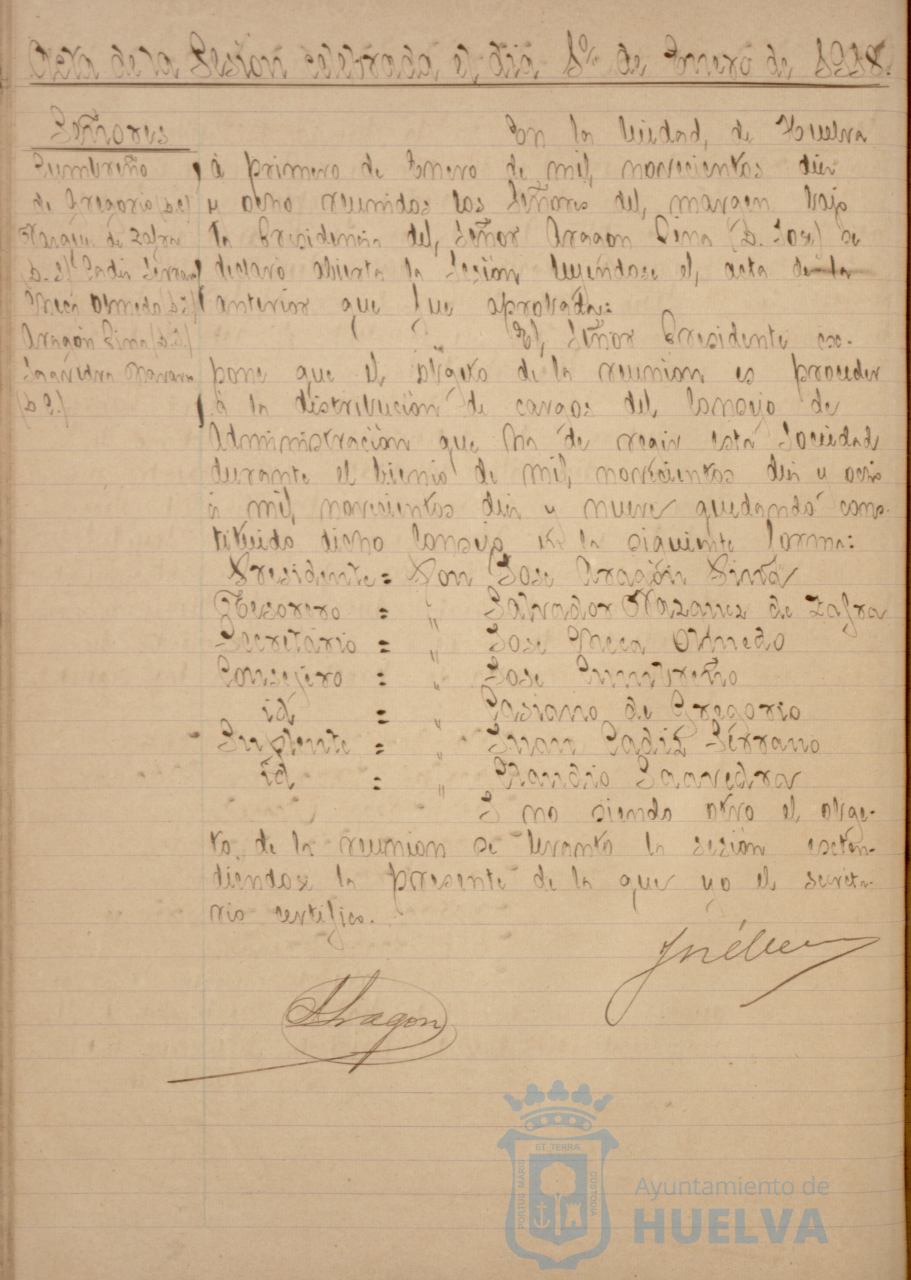 Acta de la Sesión celebrada el dia 1º de Enero de 1918.
Señores
Cumbreño
de Gregorio (D.C.)
Vazquez de Zafra
(D.S.) Cadiz Serrano
Meca Olmedo (D.J.)
Aragón Pina (D.J.)
Saavedra Navarro
(D.C.)
En la Ciudad, de Huelva
á primero de Enero de mil, novecientos diez
y ocho reunidos los Señores del, margen bajo
la Presidencia del, Señor Aragon Pina (D. José) se
declaró abierta la Sesión leyéndose el, acta de la
anterior que fue aprobada=
El, Señor Presidente ex-
pone que el objeto de la reunion es proceder
á la distribución de cargos del Consejo de
Administración que ha de regir esta Sociedad
durante el bienio de mil, novecientos diez y ocho
á mil, novecientos diez y nueve quedando cons-
tituido dicho Consejo en la siguiente forma:
Presidente = Don José Aragón Pina
Tesorero = " Salvador Vazquez de Zafra
Secretário = " José Meca Olmedo
Consejero = " José Cumbreño
id = " Casiano de Gregorio
Suplente = " Juan Cadiz Serrano
id = " Claudio Saavedra
Y no siendo otro el obge-
to de la reunion se levantó la sesión exten-
diendose la presente de la que yo el secreta-
rio certifico.
José Meca
J Aragon
ET TERRA
PORTUS MARIS
CUSTODIA
Ayuntamiento de
HUELVA